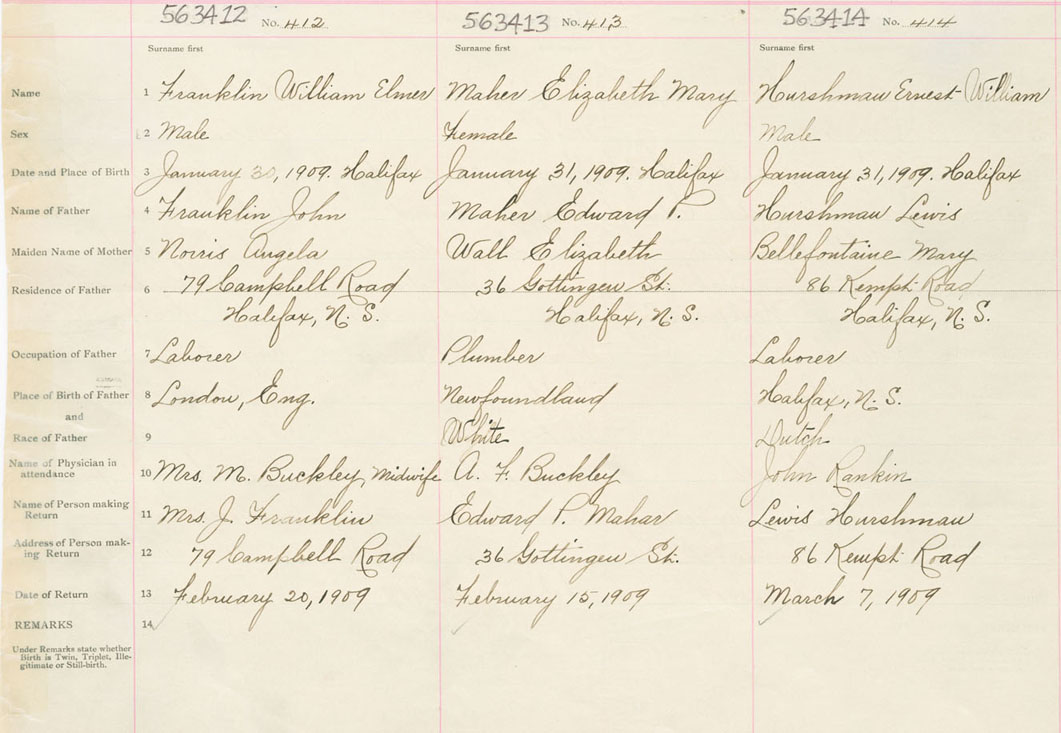 563412 No. 412 563413 No. 413 563414 No. 414
Surname first Surname first Surname first
Name 1 Franklin William Elmer Maher Elizabeth Mary Hurshman Ernest William
Sex 2 Male Female Male
Date and Place of Birth 3 January 30, 1909. Halifax January 31, 1909. Halifax January 31, 1909. Halifax
Name of Father 4 Franklin John Maher Edward P. Hurshman Lewis
Maiden Name of Mother 5 Norris Angela Wall Elizabeth Bellefontaine Mary
Residence of Father 6 79 Campbell Road 36 Gottingen St. 86 Kempt Road
Halifax, N. S. Halifax, N. S. Halifax, N. S.
Occupation of Father 7 Laborer Plumber Laborer
Place of Birth of Father 8 London, Eng. Newfoundland Halifax, N. S.
and
Race of Father 9 White Dutch
Name of Physician in
attendance 10 Mrs. M. Buckley, Midwife A. F. Buckley John Rankin
Name of Person making
Return 11 Mrs. J. Franklin Edward P. Mahar Lewis Hurshman
Address of Person mak-
ing Return 12 79 Campbell Road 36 Gottingen St. 86 Kempt Road
Date of Return 13 February 20, 1909 February 15, 1909 March 7, 1909
REMARKS 14
Under Remarks state whether
Birth is Twin, Triplet, Ille-
gitimate or Still-birth.